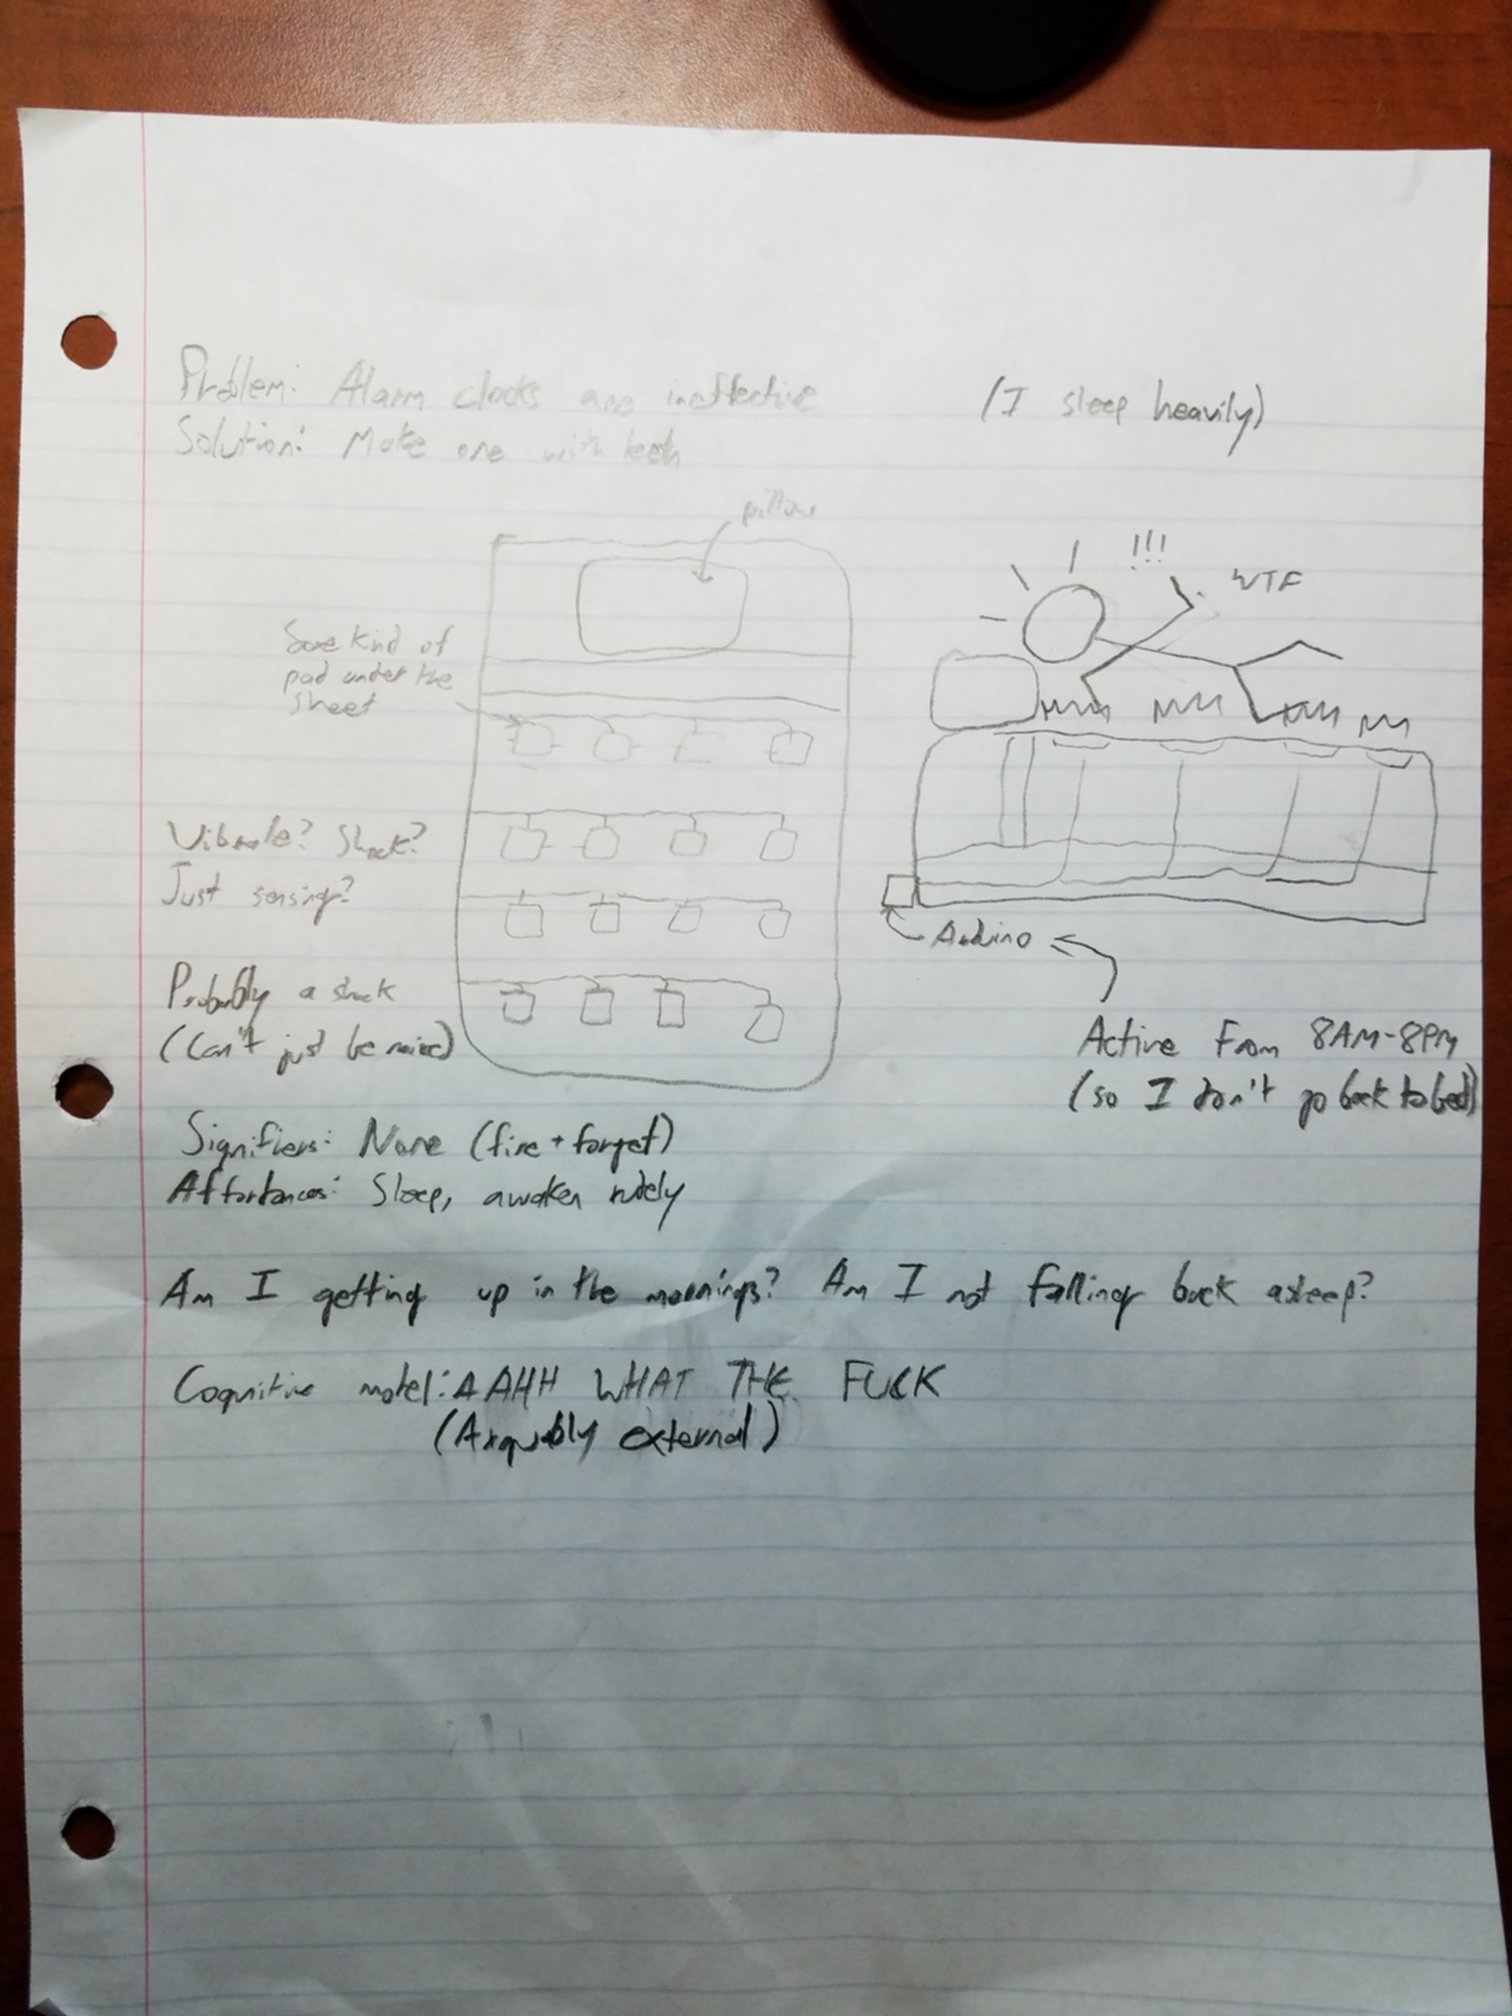 Problem: Alarm clocks are ineffective (I sleep heavily)
Solution: Make one with teeth
pillow
Some kind of
pad under the
sheet
!!!
WTF
Vibrate? Shock?
Just sensing?
Arduino
Probably a shock
(Can't just be noise)
Active From 8AM-8PM
(so I don't go back to bed)
Signifiers: None (fire + forget)
Affordances: Sleep, awaken rudely
Am I getting up in the mornings? Am I not falling back asleep?
Cognitive model: AAHH WHAT THE FUCK
(Arguably external)